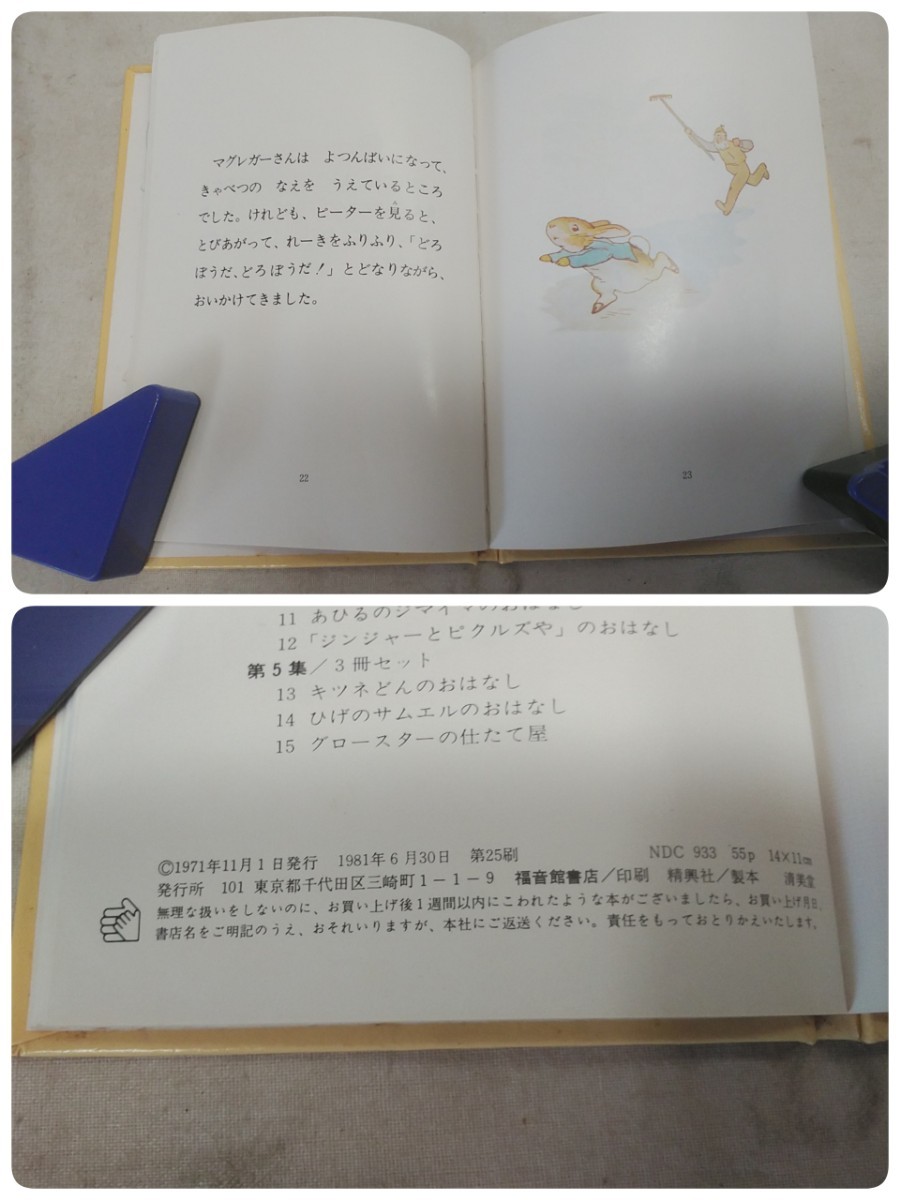 マグレガーさんは　よつんばいになって、
きゃべつの　なえを　うえているところ
でした。けれども、ピーターを見ると、
とびあがって、れーきをふりふり、「どろ
ぼうだ、どろぼうだ！」とどなりながら、
おいかけてきました。
22
23
11 あひるのジマイマのおはなし
12 「ジンジャーとピクルズや」のおはなし
第5集／3冊セット
13 キツネどんのおはなし
14 ひげのサムエルのおはなし
15 グロースターの仕たて屋
©1971年11月1日発行　1981年6月30日　第25刷　NDC 933 55p 14×11cm
発行所　101 東京都千代田区三崎町1－1－9　福音館書店／印刷　精興社／製本　清美堂
無理な扱いをしないのに、お買い上げ後1週間以内にこわれたような本がございましたら、お買い上げ月日、
書店名をご明記のうえ、おそれいりますが、本社にご返送ください。責任をもっておとりかえいたします。